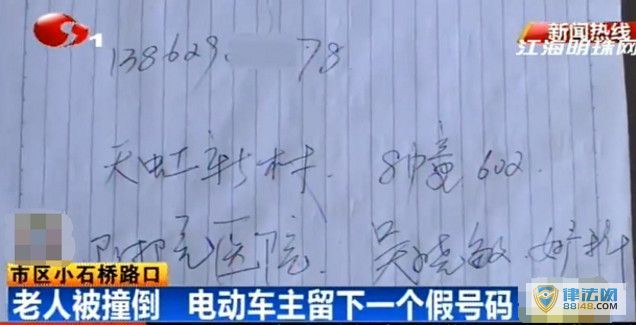 1
新闻热线
江海明珠网
138629 78
天虹新村 8幢 602
医院 吴晓敏
市区小石桥路口
老人被撞倒 电动车主留下一个假号码
律法网
88148.com